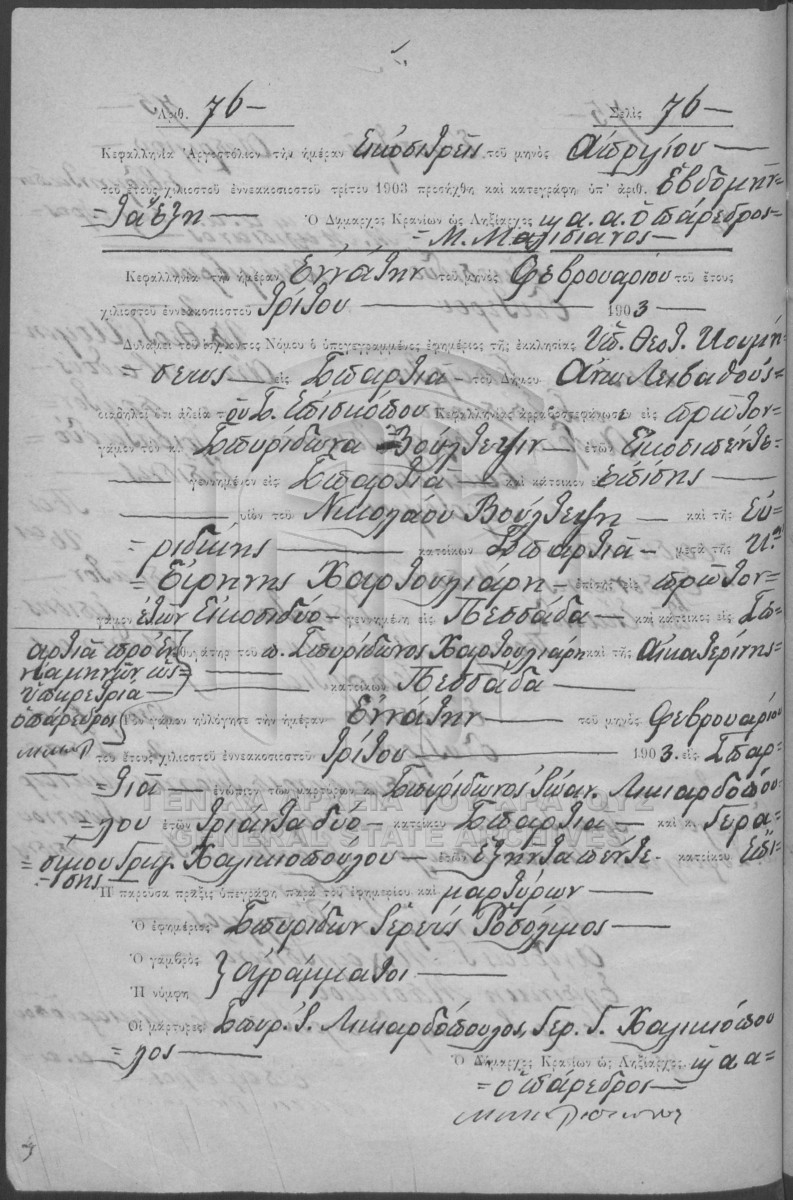 Αριθ. 76 —
Σελὶς 76 —
Κεφαλληνία Ἀργοστόλιον τὴν ἡμέραν Εἰκόσι τρεῖς τοῦ μηνὸς Ἀπριλίου —
τοῦ ἔτους χιλιοστοῦ ἐννεακοσιοστοῦ τρίτου 1903 προσήχθη καὶ κατεγράφη ὑπ' ἀριθ. Ἑβδομήν=
=τα ἕξη — Ὁ Δήμαρχος Κρανίων ὡς Ληξίαρχος κ α. α. ὁ πάρεδρος=
=Μ. Μαλισιάνος—
Κεφαλληνία τὴν ἡμέραν Ἐννάτην τοῦ μηνὸς Φεβρουαρίου τοῦ ἔτους
χιλιοστοῦ ἐννεακοσιοστοῦ τρίτου — 1903 —
Δυνάμει τοῦ ἰσχύοντος Νόμου ὁ ὑπογεγραμμένος ἐφημέριος τῆς ἐκκλησίας Ὑπ. Θεοτ. Κοιμή=
=σεως — εἰς Σπαρτιὰ — τοῦ Δήμου Ἄνω Λειβαθοῦς=
διαδηλοῖ ὅτι ἀδείᾳ τοῦ Σ. Ἐπισκόπου Κεφαλληνίας ἀρραβοστεφάνωσε εἰς πρῶτον—
γάμον τὸν κ. Σπυρίδωνα Βούλτεψιν — ἐτῶν Εἰκοσιπέντε—
— γεννημένον εἰς Σπαρτιὰ — καὶ κάτοικον ἐπίσης —
— υἱὸν τοῦ Νικολάου Βούλτεψη — καὶ τῆς Εὐ=
=ριδίκης — κατοίκων Σπαρτιὰ — μετὰ τῆς Κας
=Εἰρήνης Χαρτουλιάρη — ἐπίσης εἰς πρῶτον=
γάμον ἐτῶν Εἰκοσιδύο — γεννημένη εἰς Πεσσάδα — καὶ κάτοικος εἰς Σπ=
αρτιὰ πρὸ ἐν
νέα μηνῶν ὡς
ὑπηρέτρια —
ὁ πάρεδρος
θυγάτηρ τοῦ π. Σπυρίδωνος Χαρτουλιάρη καὶ τῆς Αἰκατερίνης=
— κατοίκων Πεσσάδα —
Τὸν γάμον ηὐλόγησε τὴν ἡμέραν Ἐννάτην — τοῦ μηνὸς Φεβρουαρίου
τοῦ ἔτους χιλιοστοῦ ἐννεακοσιοστοῦ τρίτου — 1903. εἰς Σπαρ=
=τιὰ — ἐνώπιον τῶν μαρτύρων κ. Σπυρίδωνος Ἰωάν. Λικιαρδοπού=
=λου ἐτῶν τριάντα δυό — κατοίκου Σπαρτιὰ — καὶ κ. Γερα=
=σίμου Γρηγ. Χαλικιοπούλου — ἐτῶν ἑξῆντα πέντε κατοίκου ἐπί=
=σης —
Ἡ παροῦσα πρᾶξις ὑπεγράφη παρὰ τοῦ ἐφημερίου καὶ μαρτύρων —
Ὁ ἐφημέριος Σπυρίδων Ἱερεὺς Ῥοσόλιμος —
Ὁ γαμβρὸς
Ἡ νύμφη } ἀγράμματοι —
Οἱ μάρτυρες Σπυρ. Ἰ. Λικιαρδόπουλος, Γερ. Γ. Χαλικιόπου
=λος —
Ὁ Δήμαρχος Κρανίων ὡς Ληξίαρχος κ α α=
=ὁ πάρεδρος —
ΓΕΝΙΚΑ ΑΡΧΕΙΑ ΤΟΥ ΚΡΑΤΟΥΣ
GENERAL STATE ARCHIVES